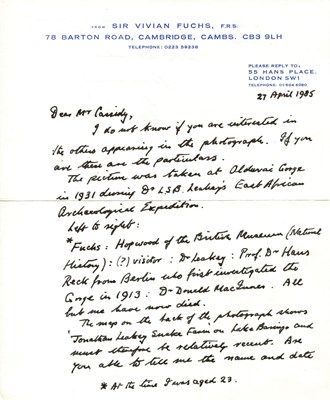 FROM SIR VIVIAN FUCHS, F.R.S.
78 BARTON ROAD, CAMBRIDGE, CAMBS. CB3 9LH
TELEPHONE: 0223 59238
PLEASE REPLY TO:
55 HANS PLACE,
LONDON SW1
TELEPHONE: 01-584
27 April 1985
Dear Mr Cassidy,
I do not know if you are interested in
the others appearing in the photograph. If you
are these are the particulars.
The picture was taken at Olduvai Gorge
in 1931 during Dr L.S.B. Leakey's East African
Archaeological Expedition.
Left to right:
* Fuchs: Hopwood of the British Museum (Natural
History): (?) visitor: Dr Leakey: Prof. Dr Hans
Reck from Berlin who first investigated the
Gorge in 1913: Dr Donald MacInnes. All
but me have now died.
The map on the back of the photograph shows
'Jonathan Leakey Snake Farm on Lake Baringo and
must therefore be relatively recent. Are
you able to tell me the name and date
* At the time I was aged 23.